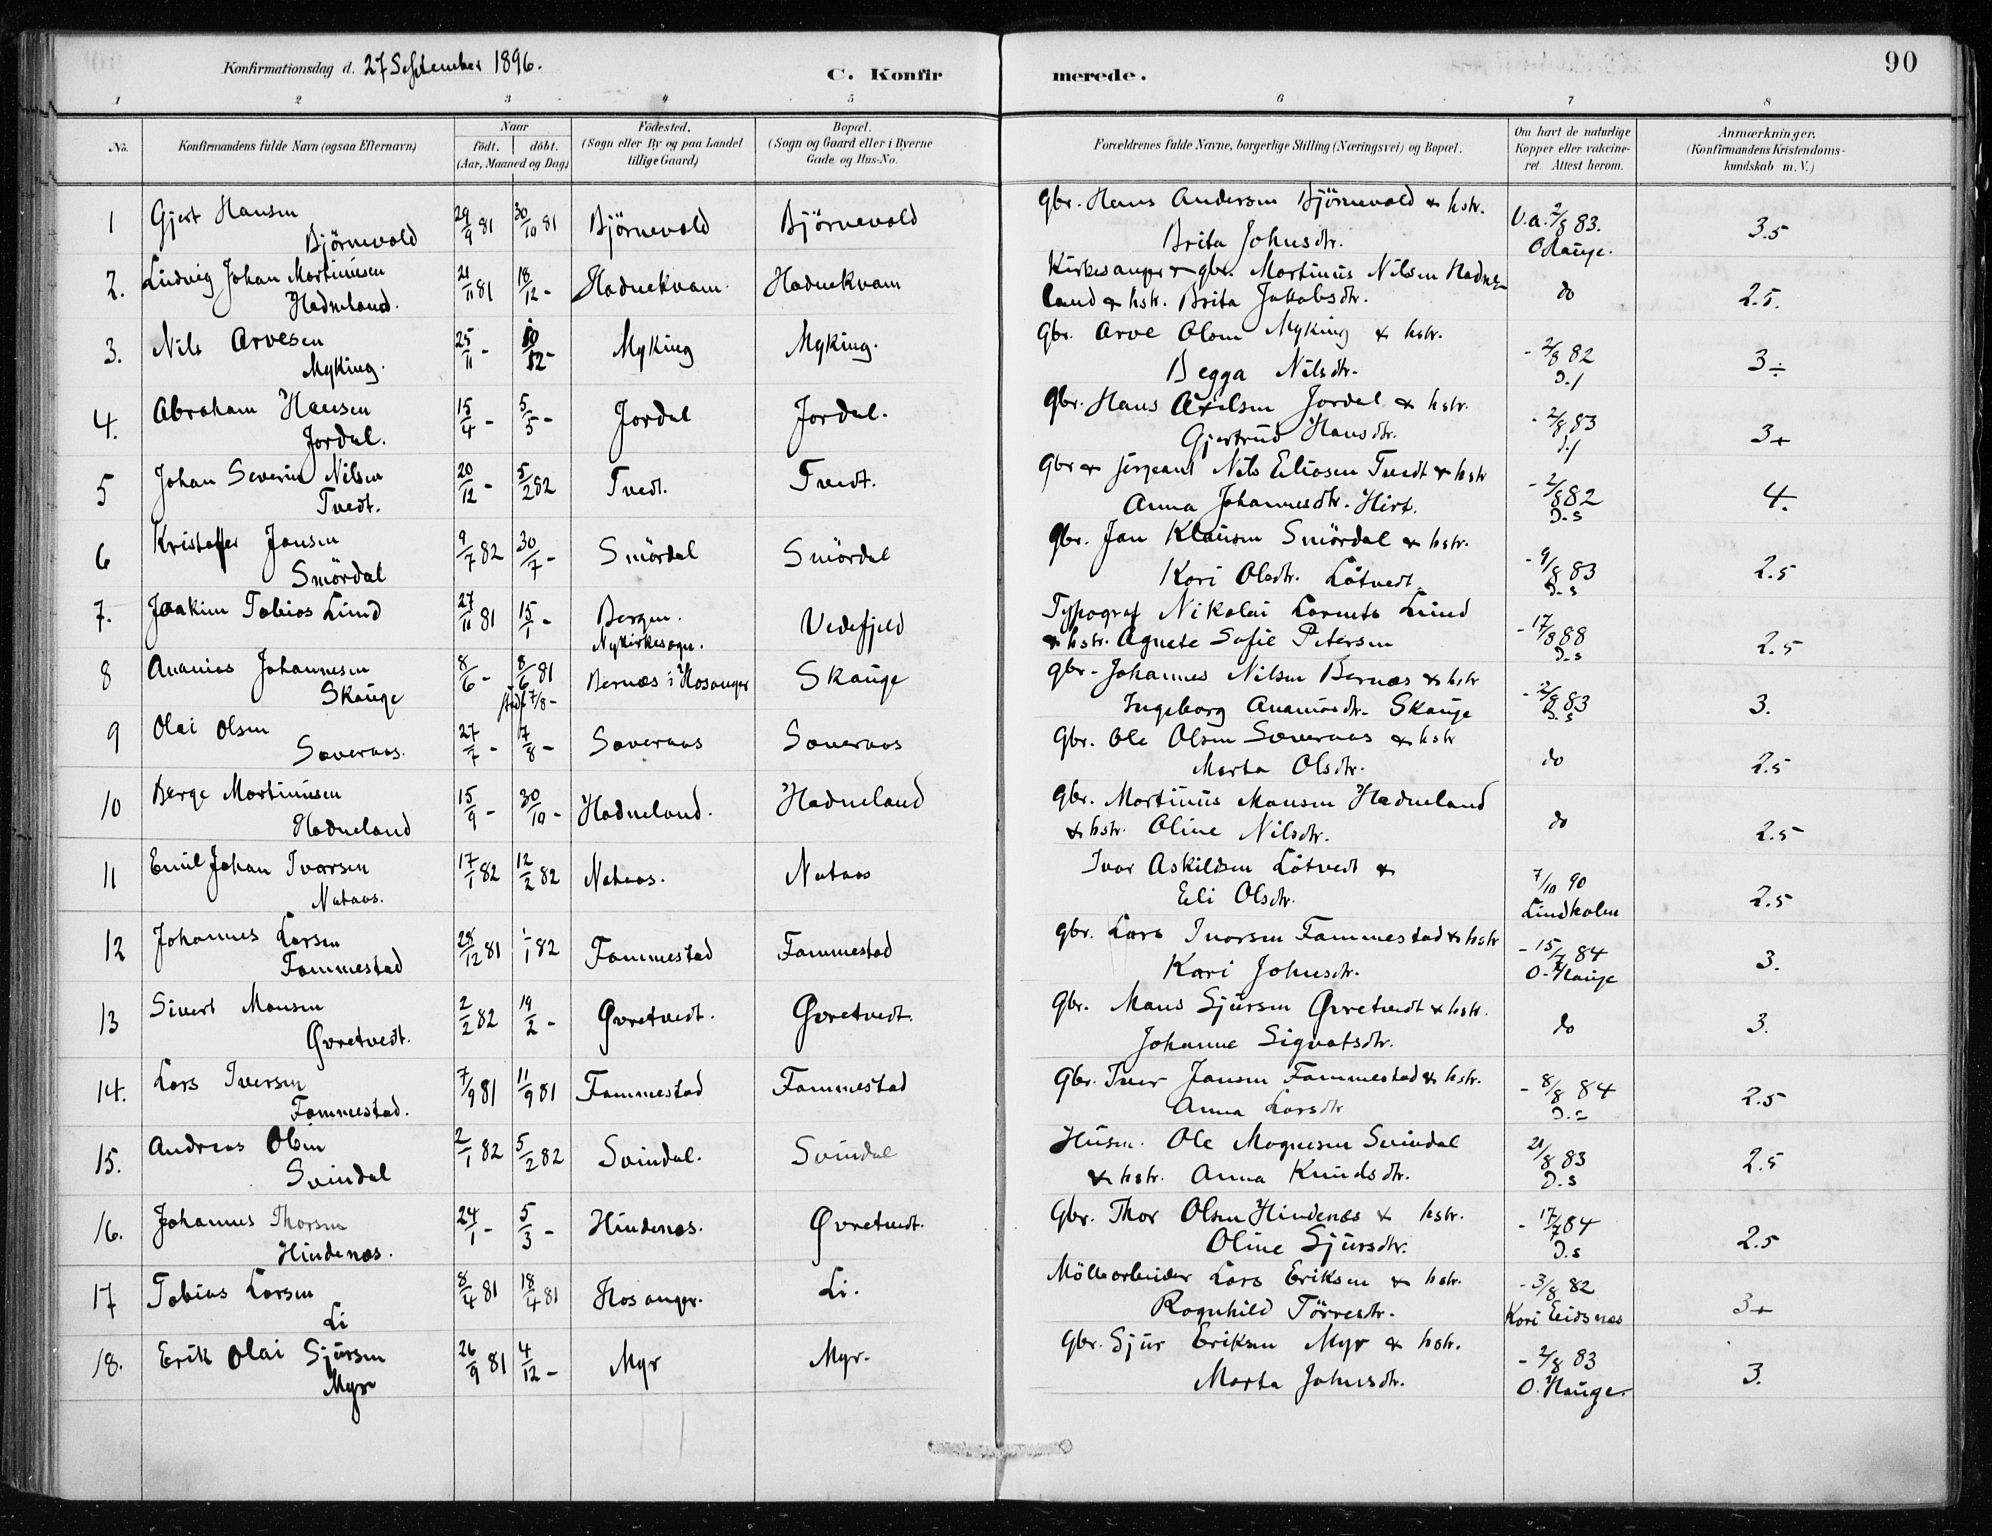 90
Konfirmationsdag d. 27 September 1896.
C. Konfirmerede.
1 2 3 4 5 6 7 8
No. Konfirmandens fulde Navn (ogsaa Efternavn) Naar født. døbt. (Aar, Maaned og Dag) Fødested. (Sogn eller By og paa Landet tillige Gaard) Bopæl. (Sogn og Gaard eller i Byerne Gade og Hus-No. Forældrenes fulde Navne, borgerlige Stilling (Næringsvei) og Bopæl. Om havt de naturlige Kopper eller vakcineret. Attest herom. Anmærkninger. (Konfirmandens Kristendomskundskab m. V.)
1 Gjert Hansen Björnevold 29/9 81 30/10 81 Björnevold Björnevold Gbr. Hans Andersen Björnevold & hstr. Brita Johnsdtr. V.a. 2/8 83. O Hauge. 3.5
2. Ludvig Johan Martinusen Hadneland. 21/11 81 18/12 - Hadnekvam. Hadnekvam Kirkesanger & gbr. Martinus Nilsen Hadneland & hstr. Brita Jakobsdtr. do 2.5.
3. Nils Arvesen Myking. 25/11 - 10/12 - Myking Myking. Gbr. Arve Olsen Myking & hstr. Begga Nilsdtr. - 2/8 82 3÷
4. Abraham Hansen Jordal. 15/4 - 5/5 - Jordal Jordal. Gbr. Hans Axelsen Jordal & hstr. Gjertrud Hansdtr. - 2/8 83 3+
5 Johan Severin Nilsen Tvedt. 20/12 - 5/2 82 Tvedt. Tvedt. Gbr & sergeant Nils Eliasen Tvedt & hstr Anna Johannesdtr. Hirt. - 2/8 82 D.s 4.
6 Kristoffer Jansen Smördal 9/7 82 30/7 - Smördal Smördal Gbr. Jan Klausen Smördal & hstr. Kari Olsdtr. Lötvedt - 9/8 83 D.s 2.5
7. Joakim Tobias Lund 27/11 81 15/1 - Bergen. Nykirkesogn. Vedefjeld Typograf Nikolai Lorents Lund & hstr. Agnete Sofie Petersen - 17/8 88 D.s 2.5
8 Ananias Johannesen Skauge 8/6 - 8/6 81 stadf 7/8 - Bernæs i Hosanger Skauge gbr. Johannes Nilsen Bernæs & hstr Ingeborg Ananiasdtr. Skauge - 2/8 83 D.s 3.
9 Olai Olsen Soveraas. 27/7 - 7/8 - Soveraas Soveraas Gbr. Ole Olsen Soveraas & hstr Marta Olsdtr. do 2.5
10 Berge Martinusen Hadneland 15/9 - 30/10 - Hadneland. Hadneland Gbr. Martinus Monsen Hadneland & hstr. Oline Nilsdtr. do 2.5
11 Emil Johan Ivarsen Nataas. 17/1 82 12/2 82 Nataas. Nataas Ivar Askildsen Lötvedt & Eli Olsdtr. 7/10 90 Lindholm 2.5
12 Johannes Larsen Fammestad 28/12 81 1/1 82 Fammestad Fammestad gbr. Lars Ivarsen Fammestad & hstr Kari Johnsdtr. - 15/7 84 O. Hauge 3.
13 Sivert Monsen Øvretvedt. 2/2 82 19/2 - Øvretvedt. Øvretvedt. Gbr. Mons Sjursen Øvretvedt & hstr. Johanne Sigvatsdtr. do 3.
14. Lars Iversen Fammestad. 7/9 81 11/9 81 Fammestad Fammestad Gbr. Iver Jansen Fammestad & hstr. Anna Larsdtr - 8/8 84 D.s 2.5
15. Andreas Olsen Svindal 2/1 82 5/2 82 Svindal. Svindal Husm. Ole Magnesen Svindal & hstr. Anna Knudsdtr. 21/8 83 D.s 2.5
16. Johannes Thorsen Hindenæs. 24/1 - 5/3 - Hindenæs. Øvretvedt. Gbr. Thor Olsen Hindenæs & hstr. Oline Sjursdtr. - 17/7 84 D.s 2.5
17 Tobias Larsen Li 8/4 81 18/4 81 Hosanger. Li. Möllearbeider Lars Eriksen & hstr. Ragnhild Törresdtr. - 3/8 82 Kari Eidsnes 3+
18. Erik Olai Sjursen Myr 26/9 81 4/12 - Myr Myr. Gbr. Sjur Eriksen Myr & hstr. Marta Johnsdtr. - 2/8 83 O. Hauge 3.